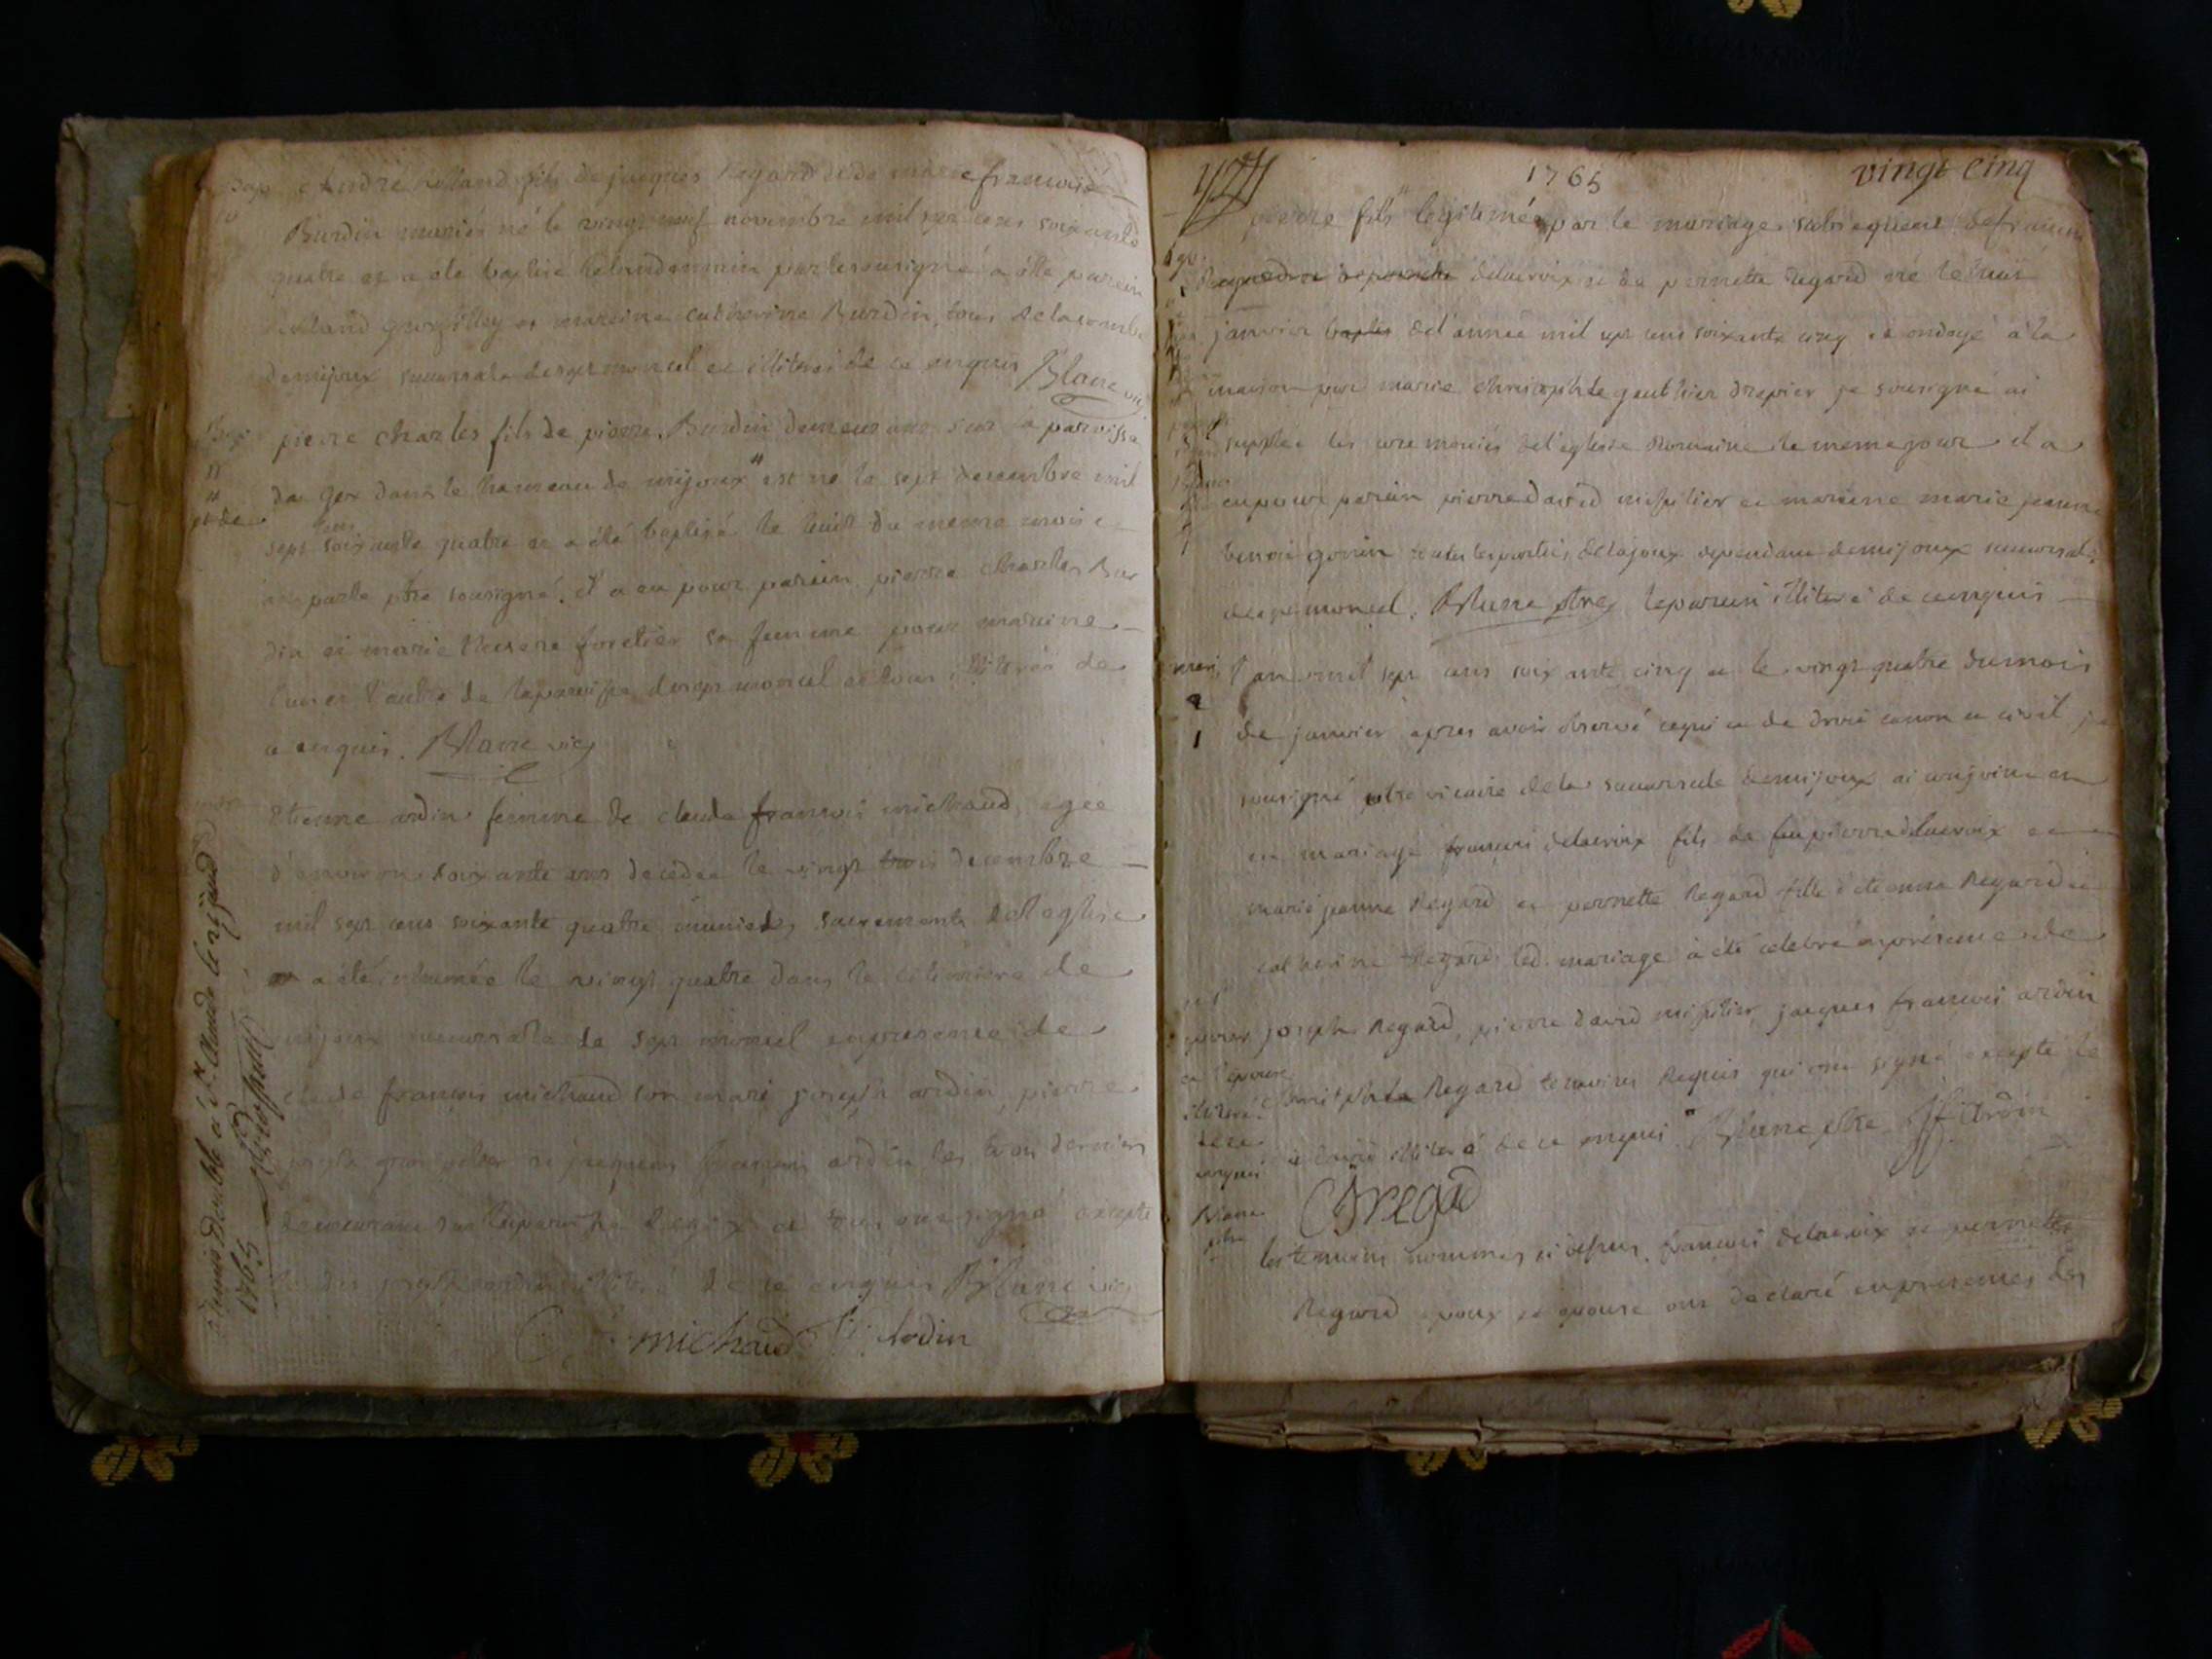 Bap andré Rolland fils de jacques Regard et de marie francoise
Burdin mariés né le vingt neuf novembre mil sept cens soixante
quatre et a été baptisé le landemain par le sousigné a été parein
Rolland et mareine catherine Burdin, tous de la combe
de mijoux succursale de sept moncel et illiterés de ce enquis Blanc vic
pierre charles fils de pierre Burdin demeurant sur la paroisse
de Gex dans le hameau de mijoux " est né le sept decembre mil
sept cens soixante quatre et a été baptisé le huit du meme mois
par le ptre sousigné. il a eu pour parein pierre charles Bur
din et marie foretier sa femme pour mareine
l'un et l'autre de la paroisse de sept moncel et tous illiterés de
ce enquis. Blanc vic
Etienne ardin femme de claude francois michaud, agée
d'environ soixante ans decedée le vingt trois decembre
mil sept cens soixante quatre munie des sacrements de l'eglise
a été inhumée le vingt quatre dans le cimetiere de
mijoux succursale de sept moncel en presence de
claude francois michaud son mari joseph ardin, pierre
joseph et jacques francois ardin les trois derniers
demeurant sur la paroisse de gex et tous ont signé excepté
joseph ardin illiteré de ce enquis Blanc vic
michaud J f Ardin
à St. Claude le 25 janv
1765
1765
vingt cinq
pierre fils " legitimé par le mariage subsequent de francois
delacroix et de pernette Regard né le huit
janvier baptisé de l'année mil sept cens soixante cinq et ondoyé à la
maison par marie christophle gauthier drapier je sousigné ai
supplée les ceremonies de l'eglise Romaine le meme jour il a
eu pour parein pierre david missilier et mareine marie jeanne
benoit gonin toutes les parties de lajoux dependant de mijoux succursale
de sept moncel. Blanc ptre le parein illiteré de ce enquis
mari l'an mil sept cens soixante cinq et le vingt quatre du mois
2
1
de janvier apres avoir observé ce qui est de droit canon et civil je
sousigné ptre vicaire de la succursale de mijoux ai conjoint en
en mariage francois delacroix fils de feu pierre delacroix et
marie jeanne Regard et pernette Regard fille d'etienne Regard et
catherine Regard led. mariage a été celebré en presence de
joseph Regard, pierre david missilier, jacques francois ardin
christophle Regard temoins Requis qui ont signé excepté le
david illiteré de ce enquis " Blanc ptre J f Ardin
et l'epouse
illiterés
de ce
enquis
Blanc
ptre
C J regad
les temoins nommés ci dessus, francois delacroix et pernette
Regard epoux et epouse ont declaré en presence des